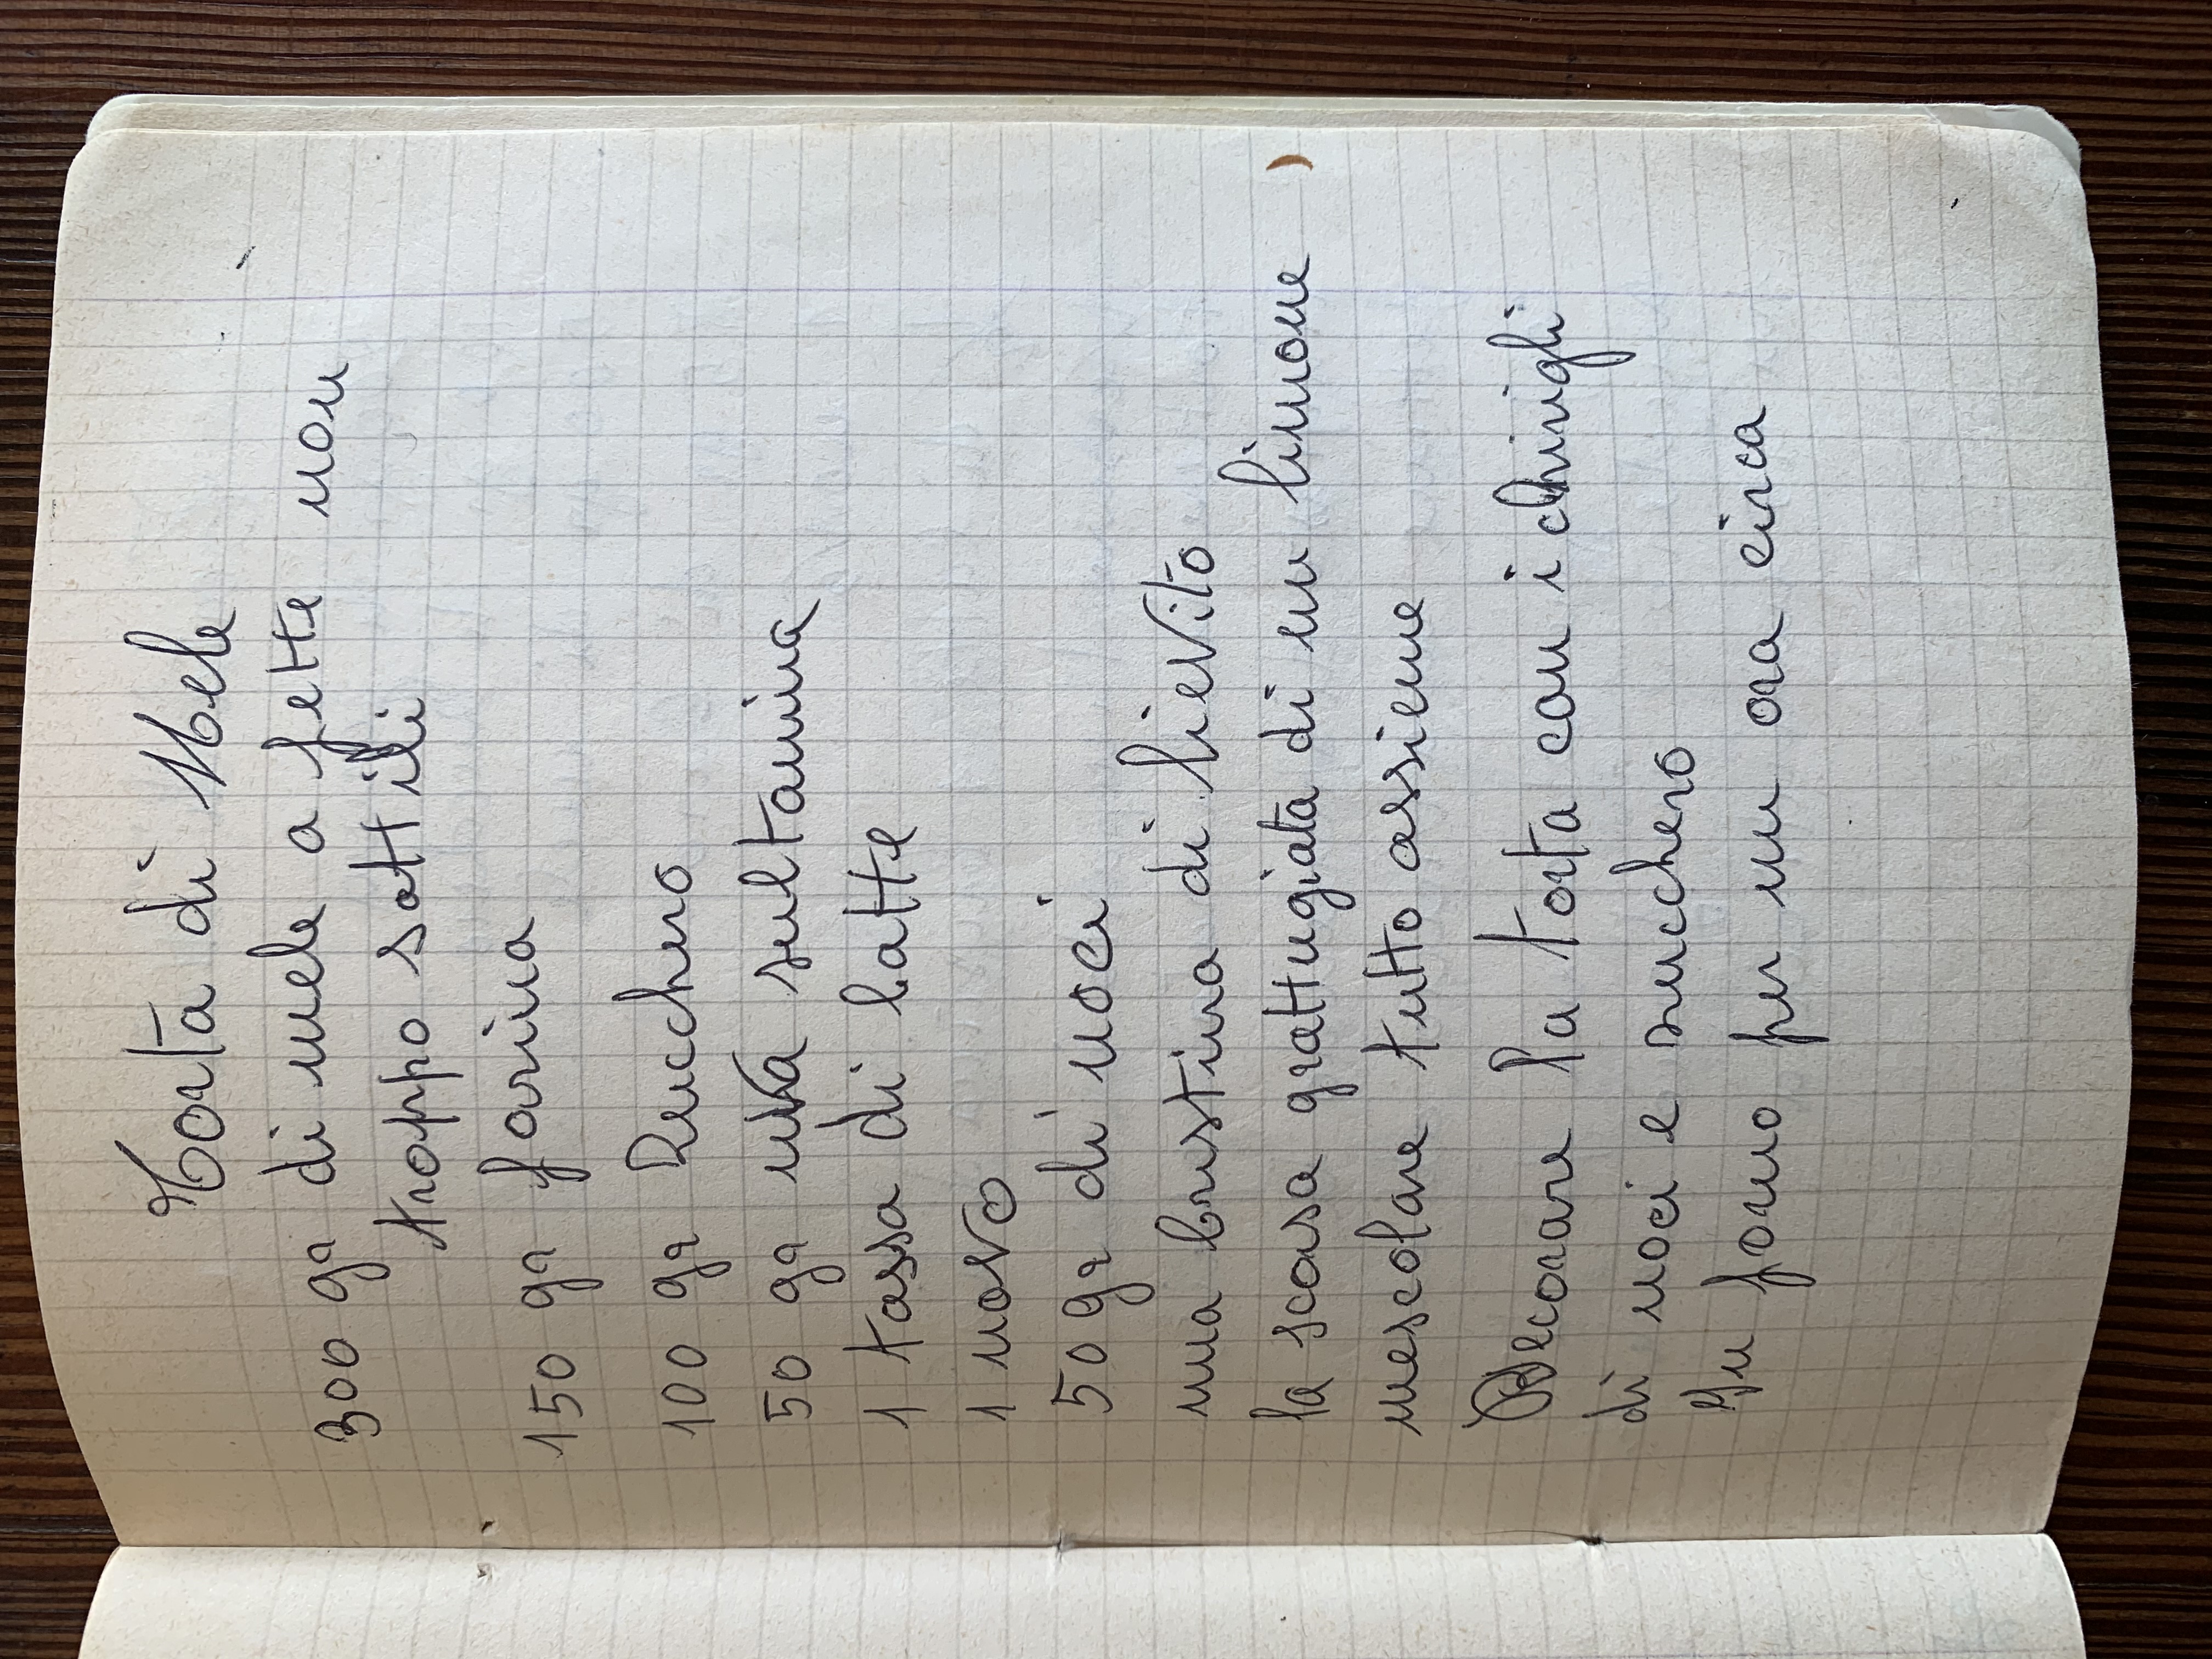 Torta di Mele
300 gr di mele a fette non
troppo sottili
150 gr farina
100 gr Zucchero
50 gr uva sultanina
1 tassa di latte
1 uovo
50 gr di noci
una bustina di lievito
la scorsa grattugiata di un limone
mescolare tutto assieme
Decorare la torta con i ghirigli
di noci e zucchero
In forno per un ora circa